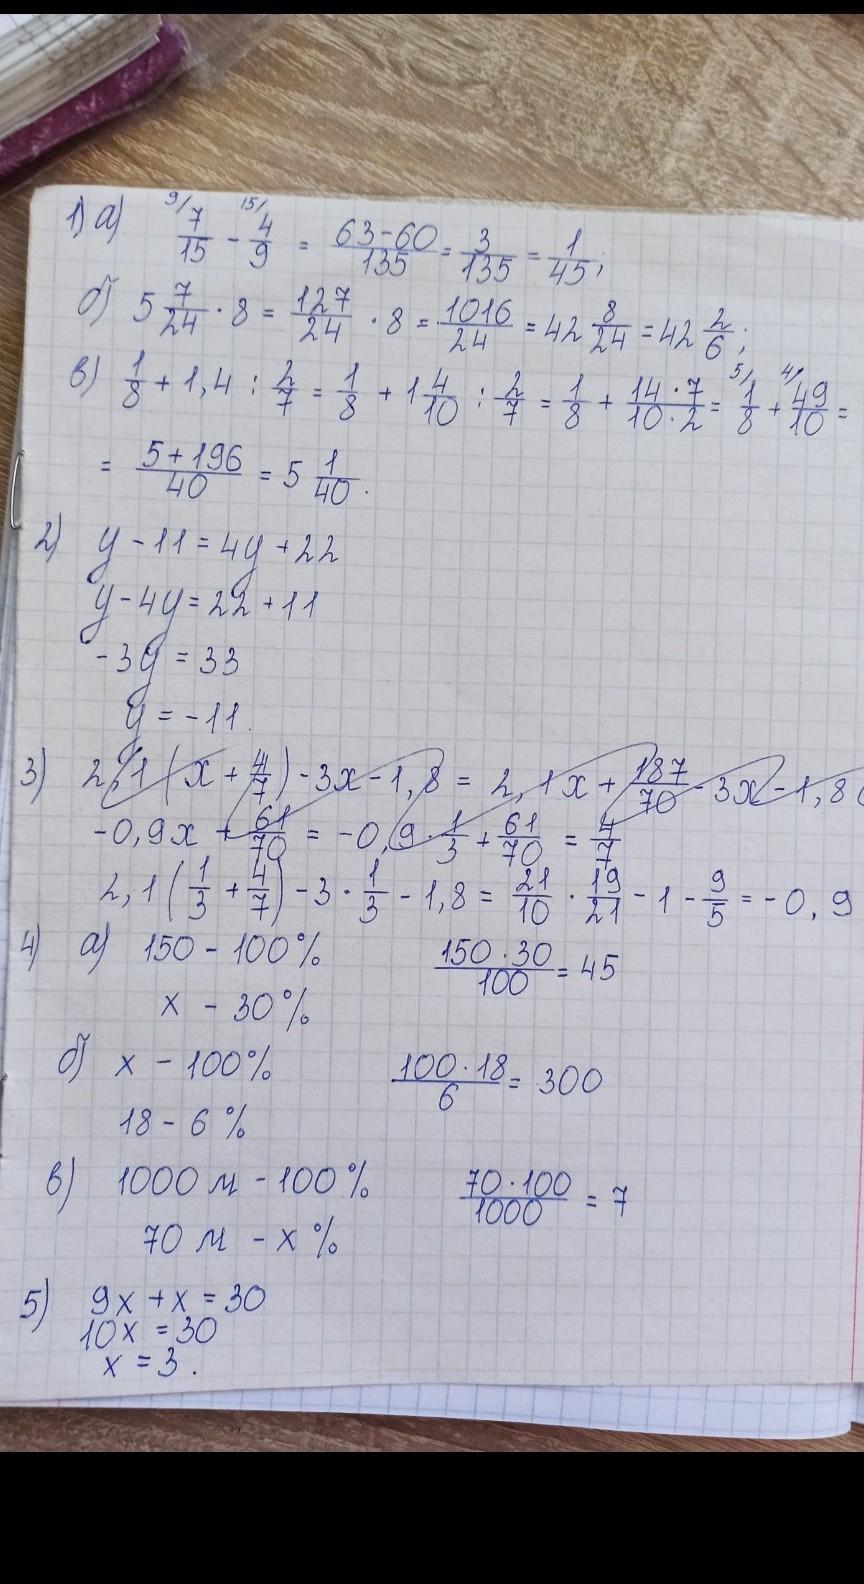 1) а) 9/ 7/15 - 15/ 4/9 = 63-60/135 = 3/135 = 1/45;
б) 5 7/24 · 8 = 127/24 · 8 = 1016/24 = 42 8/24 = 42 2/6;
в) 1/8 + 1,4 : 2/7 = 1/8 + 1 4/10 : 2/7 = 1/8 + 14·7/10·2 = 5/ 1/8 + 4/ 49/10 =
= 5+196/40 = 5 1/40.
2) y - 11 = 4y + 22
y - 4y = 22 + 11
-3y = 33
y = -11.
3) 2,1 (x + 4/7) - 3x - 1,8 = 2,1x + 187/70 - 3x - 1,8
-0,9x + 61/70 = -0,9 · 1/3 + 61/70 = 4/7
2,1 (1/3 + 4/7) - 3 · 1/3 - 1,8 = 21/10 · 19/21 - 1 - 9/5 = -0,9
4) а) 150 - 100% 150·30/100 = 45
x - 30%
б) x - 100% 100·18/6 = 300
18 - 6%
в) 1000 м - 100% 70·100/1000 = 7
70 м - x%
5) 9x + x = 30
10x = 30
x = 3.